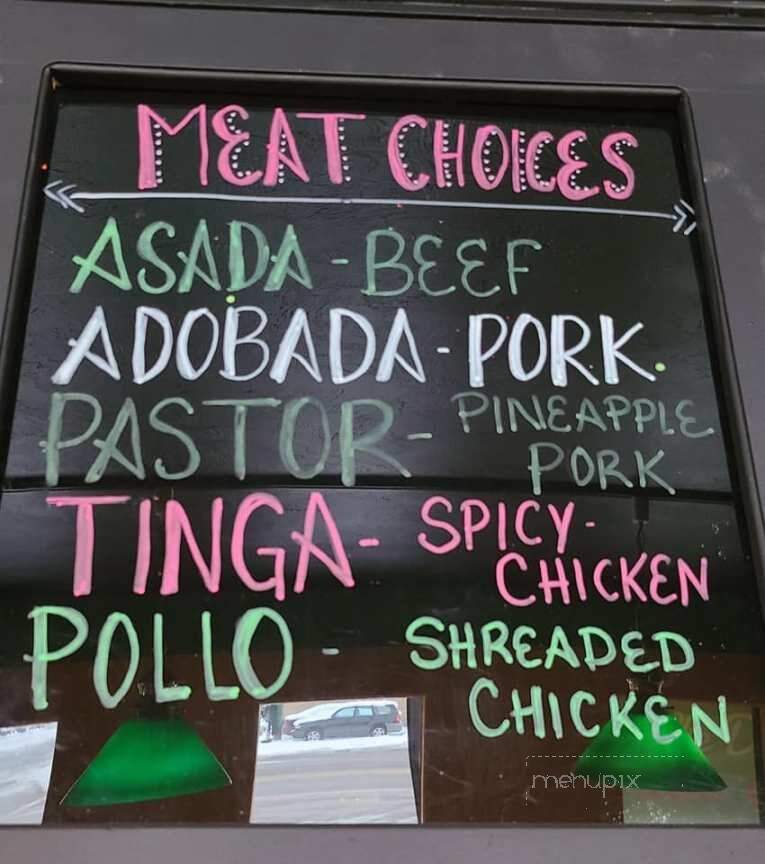 MEAT CHOICES
ASADA - BEEF
ADOBADA - PORK.
PASTOR - PINEAPPLE
PORK
TINGA - SPICY-
CHICKEN
POLLO - SHREADED
CHICKEN
menupix